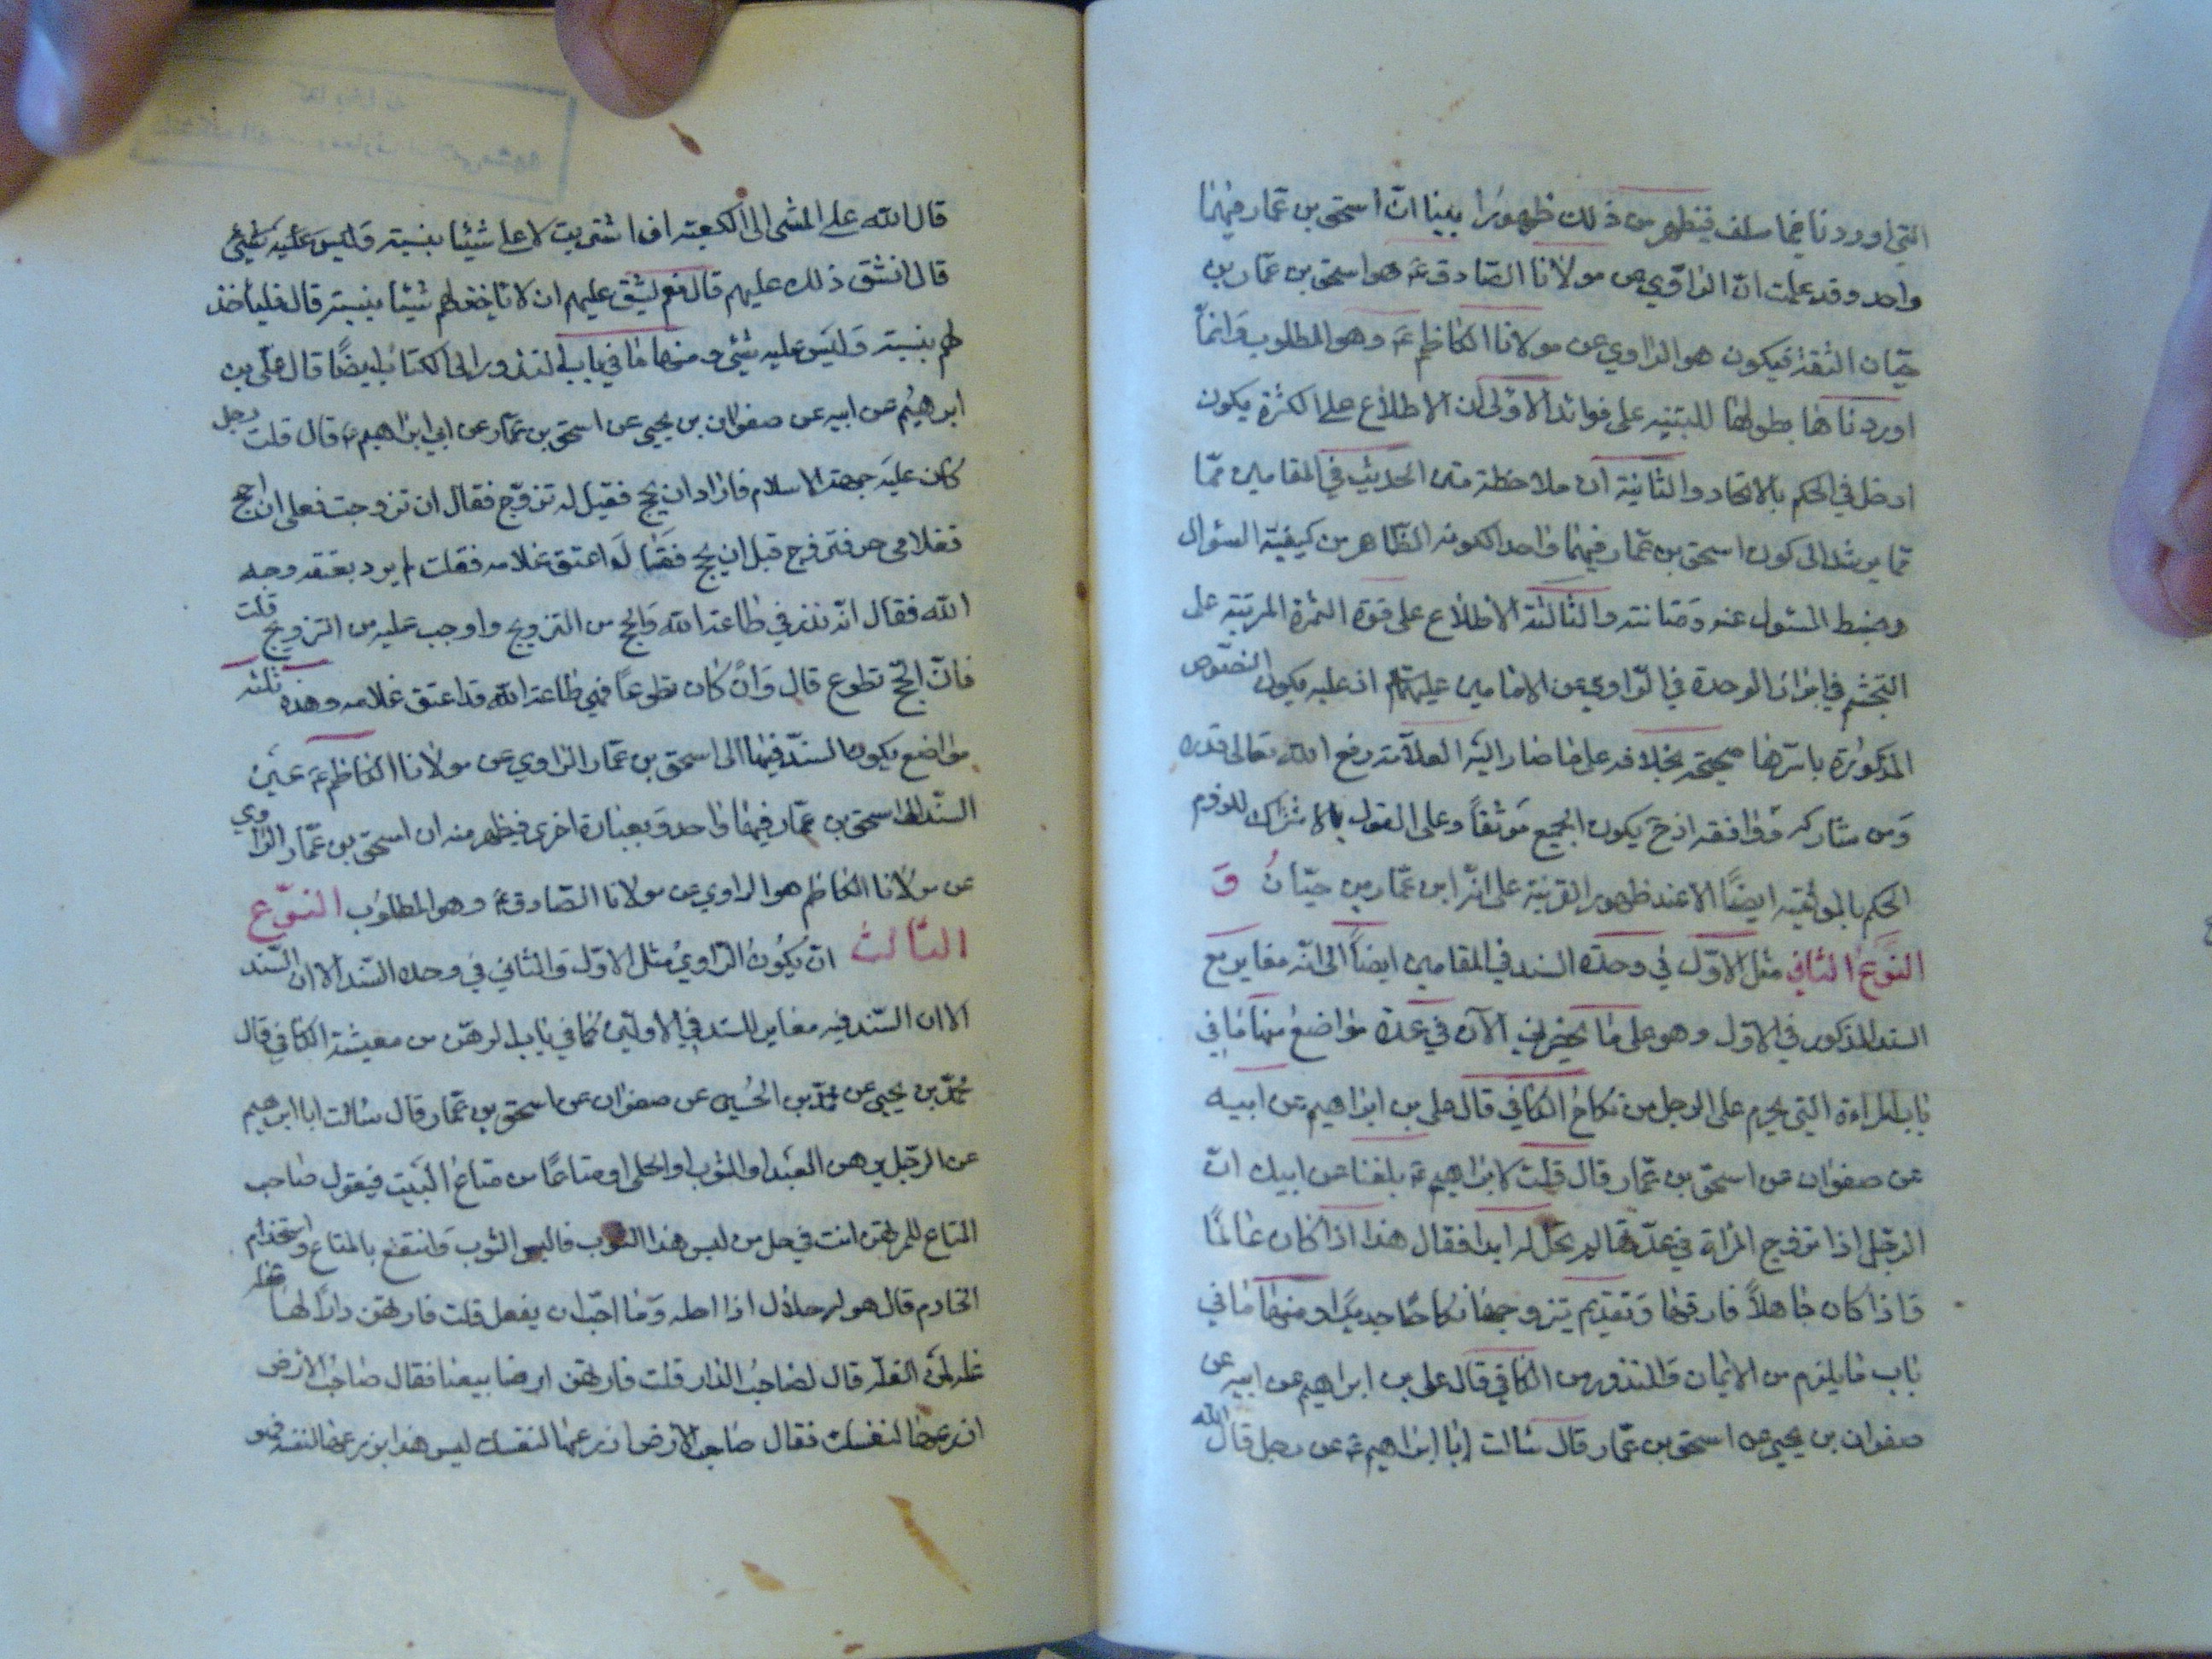 التي اوردنا فيما سلف فيظهر من ذلك ظهورا بينا انّ اسحق بن عمار فيهما
واحد وقد علمت انّ الراوي عن مولانا الصّادق ع هو اسحق بن عمّار بن
حيّان الثقة فيكون هو الراوي عن مولانا الكاظم ع وهو المطلوب وانماّ
اوردناها بطولها للتنبيه على فوائد الاولى ان الاطلاع على الكثرة يكون
ادخل في الحكم بالاتحاد والثانية ان ملاحظة متن الحديث في المقامين ممّا
ممّا يرشد الى كون اسحق بن عمّار فيهما واحدا لكونه الظّاهر من كيفيّة السّؤال
وضبط المسئول عنه ومتانته والثالثة الاطلاع على قوّة الثمرة المرتبة على
التجشم في ابراز الوحدة في الرّاوي عن الامامين عليهما م اذ عليه يكون النصّوص
المذكورة باسرها صحيحة بخلافه على ما صار اليه العلّامة رفع الله تعالى قدره
ومن شاركه ووافقه اذ ح يكون الجميع موثقاً وعلى القول بالاشتراك للزوم
الحكم بالموثقية ايضًا الا عند ظهور القرينة على انّه ابن عمّار بن حيّان وَ
النّوع الثاني مثل الاوّل في وحدة السند في المقامين ايضاً الا انّه مغاير مع
السند المذكور في الاوّل وهو على ما يحضرني الآن في عدة مواضع منها ما في
باب المراءة التي يحرم على الرجل من نكاح الكافي قال علي بن ابراهيم عن ابيه
عن صفوان عن اسحق بن عمّار قال قلت لابي ابراهيم ع بلغنا عن ابيك انّ
الرجّل اذا تزوج المراة في عدّتها لم تحل له ابدا فقال هذا اذا كان عالمًا
فاذا كان جاهلاً فارقها وتقديم تزوجها نكاحًا جديدًا ومنها ما في
باب ما يلزم من الايمان والنذور من الكافي قال علي بن ابراهيم عن ابيه عن
صفوان بن يحيى عن اسحق بن عمّار قال سالت ابا ابراهيم ع عن رجل قال لله
قال لله علي المشى الى الكعبة ان اشتريت لاهلي شيئا بنسية فليس عليه شيئ
قال ايشق ذلك عليهم قال نعم يشق عليهم ان لا ياخذ لهم شيئا بنسية قال فلياخذ
لهم بنسية وليس عليه شئى ومنها ما في باب النذور الكتاب ايضًا قال علّي بن
ابرهيم عن ابيه عن صفوان بن يحيى عن اسحق بن عمّار عن ابي ابراهيم ع قال قلت رجل
كان عليه حجة الاسلام فاراد ان يحج فقيل له تزوّج فقال ان تزوجت فعلى ان احج
فغلامي حر فتزوج قبل ان يحج فقال اعتق غلامه فقلت لم يرد بعتقه وجه
الله فقال انّه نذر في طاعة الله والحج من التزويج واوجب عليه من التزويج قلت
فانّ الحجّ تطوع قال وانً كان تطوعاً فهي طاعة الله قد اعتق غلامه وهذه ثلثة
مواضع يكون السندّ فيها الى اسحق بن عمّار الراوي عن مولانا الكاظم ع عين
السّند اسحق بن عمّار فيهما واحد وبعبارة اخرى فيظهر منه ان اسحق بن عمّار الراوي
عن مولانا الكاظم هو الراوي عن مولانا الصّادق ع وهو المطلوب النّوع
الثّالث انّ يكون الراوي مثل الاوّل والثاني في وحدة السّند الا ان السّند
الا ان السّند فيه مغاير للسند في الاولين كما في باب الرهن من معيشة الكافي قال
محمّد بن يحيى عن محمّد بن الحسين عن صفوان عن اسحق بن عمّار قال سالت ابا ابرهيم
عن الرجّل يرهن العبد او الثوب او الحلى او متاعًا من متاع البيت فيقول صاحب
المتاع للمرتهن انت في حل من لبس هذا الثوب فالبس الثوب وانتفع بالمتاع واستخدام
الخادم قال هو له حلال اذا احله وما احبّ ان يفعل قلت فارتهن دارًا لها غلة
لمن الغلّة قال لصاحب الدار قلت فارتهن ارضا بيضا فقال صاحب الارض
ازرعها لنفسك فقال صاحب الارض ازرعها لنفسك ليس هذا يزرعها لنفسه فهو